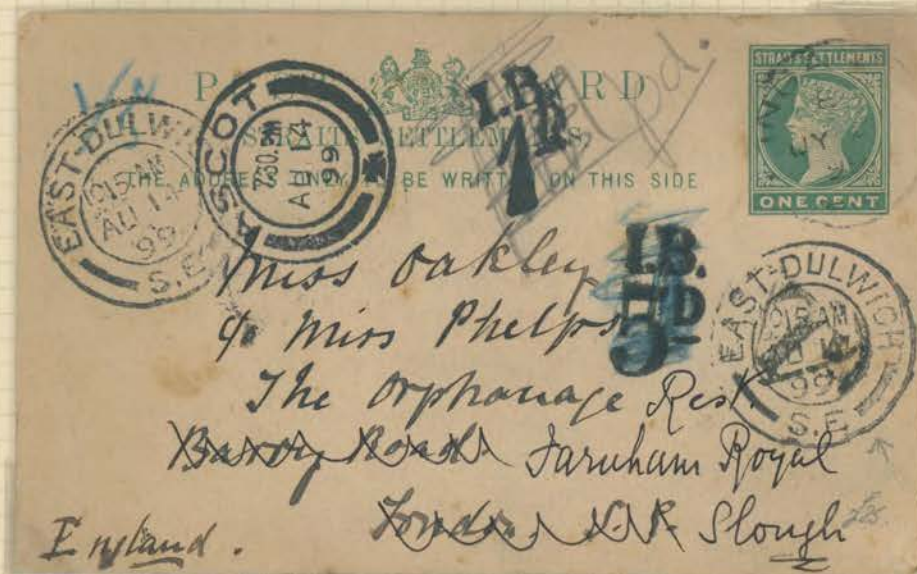 POST CARD
STRAITS SETTLEMENTS.
THE ADDRESS ONLY TO BE WRITTEN ON THIS SIDE
STRAITS SETTLEMENTS
ONE CENT
EAST-DULWICH
1015 AM
AU 14
99
S.E
ASCOT
7.30 PM
AU 14
99
I.B.
1D
pd.
I.B.
5D
EAST-DULWICH
1015 AM
AU 14
99
S.E
Miss Oakley
c/o Miss Phelps
The Orphanage Rest.
Road Farnham Royal
London Slough
England.